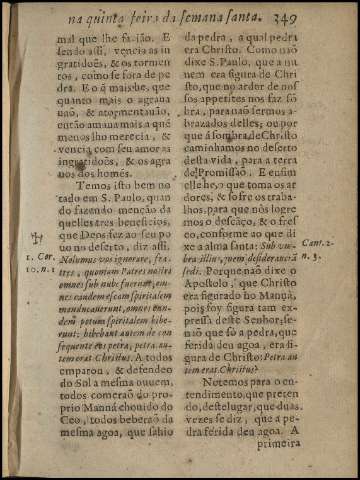 na quinta feira da semana santa. 349
mal que lhe fazião. E
sendo assi, vencia as in
gratidoẽs, & os tormen
tos, como se fora de pe
dra. E o q̃ mais he, que
quanto mais o agraua
uaõ, & atormentauão,
então amaua mais a quẽ
menos lho merecia, &
vencia com seu amor as
ingratidoẽs, & os agra
uos dos homẽs.
Temos isto bem no
tado em S. Paulo, quan
do fazendo menção da
quelles tres beneficios,
que Deos fez ao seu po
uo no deserto, diz assi.
1. Cor.
10. n. 1
Nolumus vos ignorare, fra-
tres, quoniam Patres nostri
omnes sub nube fuerunt, om-
nes eandem escam spiritalem
manducauerunt, omnes eun-
dem potum spiritalem bibe-
runt: bibebant autem de con
sequente eos petra, petra au-
tem erat Christus. A todos
emparou, & defendeo
do Sol a mesma nuuem,
todos comeraõ do pro-
prio Manná chouido do
Ceo, todos beberaõ da
mesma agoa, que sahio
da pedra, a qual pedra
era Christo. Como naõ
dixe S. Paulo, que a nu
uem era figura de Chri
sto, que no ardor de nos
sos appetites nos faz sõ
bra, para não sermos a-
brazados delles; ou por
que á sombra de Christo
caminhamos no deserto
desta vida, para a terra
de Promissaõ. E ensim
elle he, o que toma os ar
dores, & sofre os traba-
lhos, para que nòs logre
mos o descãço, & o fres
co, conforme ao que di
xe a alma santa: Sub vm-
bra illius, quem desideraui ã
sedi. Porque naõ dixe o
Cant. 2.
n. 3.
Apostolo, que Christo
era figurado no Manná,
pois foy figura tam ex-
pressa deste Senhor, se-
naõ que só a pedra, que
ferida deu agoa, era fi-
gura de Christo: Petra au
tem erat Christus?
Notemos para o en-
tendimento, que preten
do, deste lugar, que duas
vezes se diz, que a pe-
dra ferida deu agoa. A
primeira